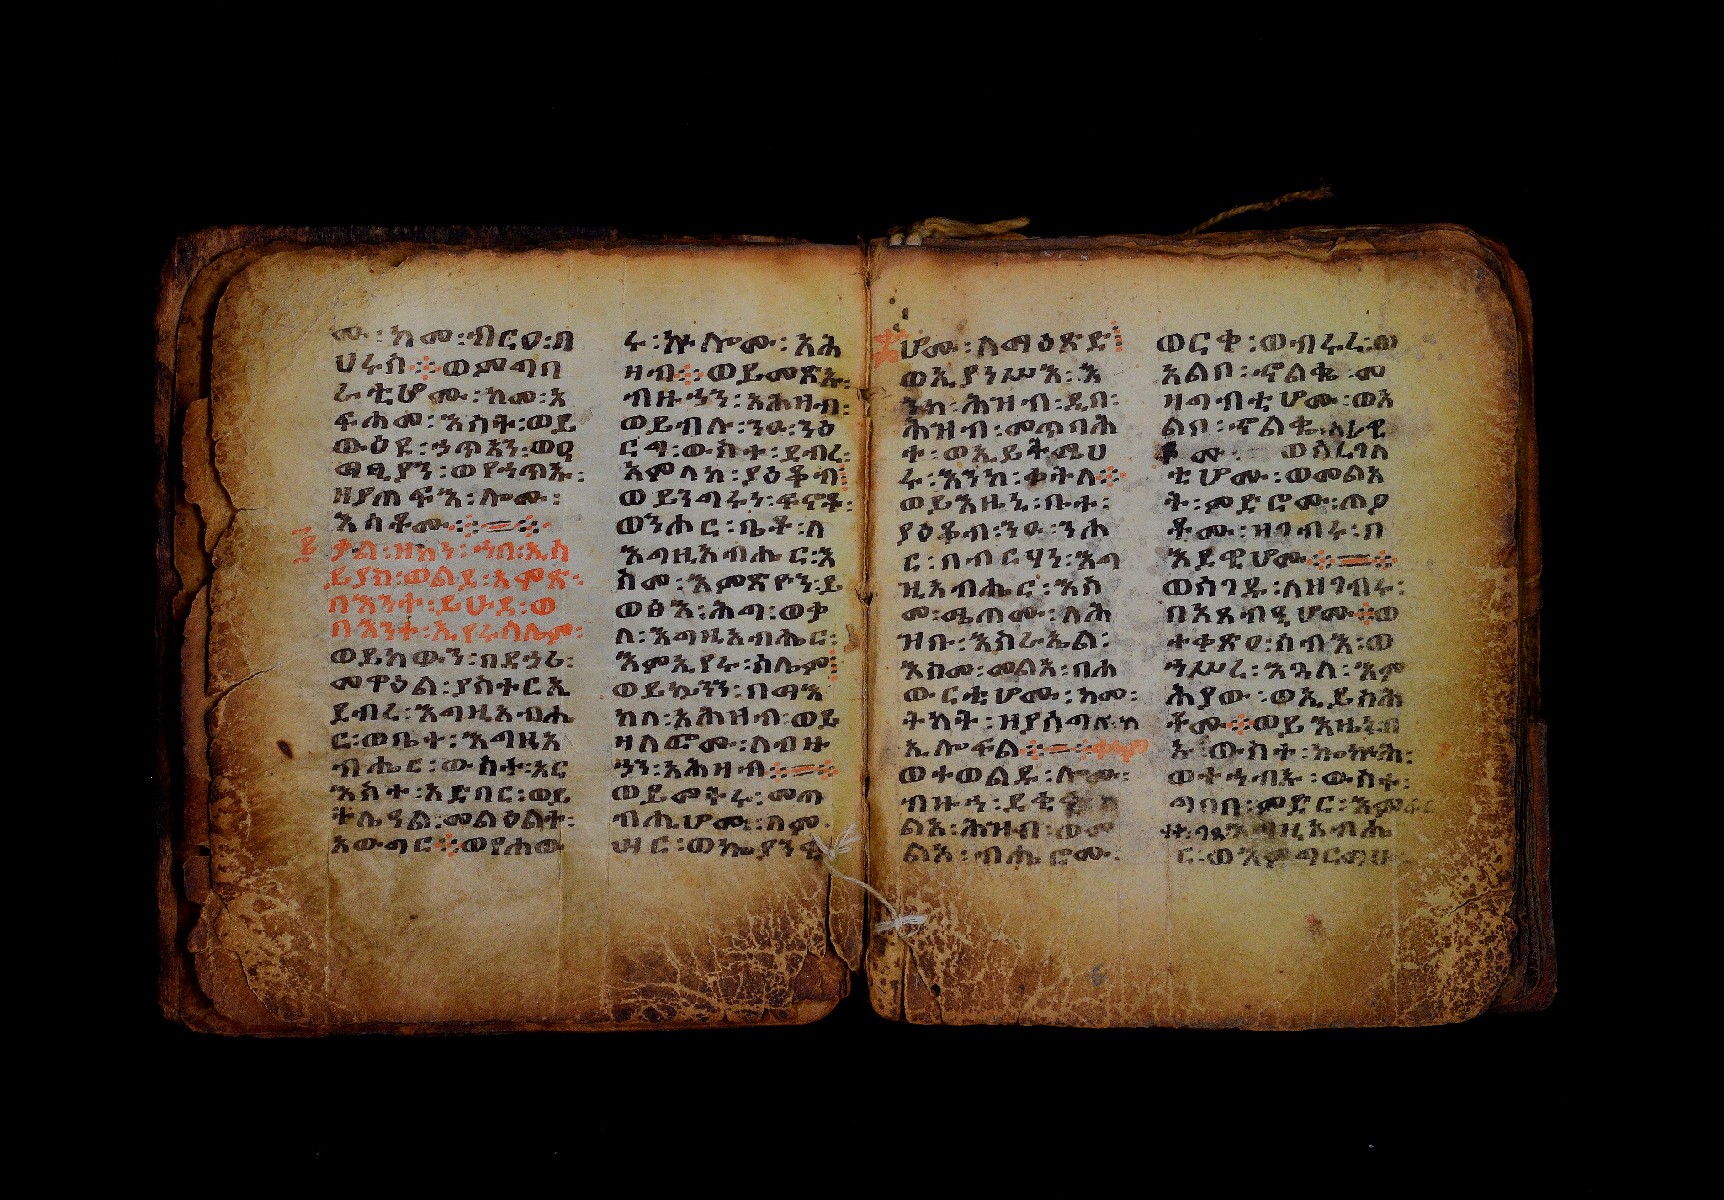 ሙ፡ከመ፡ብርዐ፡በ
ሀሩስ፨ወምግባ
ራቲሆሙ፡ከመ፡አ
ፍሐመ፡እሳት፡ወይ
ውዕዩ፡ኃጥኣን፡ወዐ
ማፂያን፡ወየኀጥኡ፡
ዘያጠፍእ፡ሎሙ፡
እሳቶሙ፨=፨
ቃል፡ዘኮነ፡ኀበ፡ኢሳ
ይያስ፡ወልደ፡አሞጽ፡
በእንተ፡ይሁዳ፡ወ
በእንተ፡ኢየሩሳሌም፡
ወይከውን፡በደኃሪ፡
መዋዕል፡ያስተርኢ
ደብረ፡እግዚአብሔ
ር፡ወቤተ፡እግዚአ
ብሔር፡ውስተ፡አር
እስተ፡አድባር፡ወይ
ትሌዓል፡መልዕልተ፡
አውግር፨ወየሐው
ሩ፡ኵሎሙ፡አሕ
ዛብ፨ወይመጽኡ፡
ብዙኃን፡አሕዛብ፡
ወይብሉ፡ንዑ፡ንዕ
ርግ፡ውስተ፡ደብረ፡
አምላከ፡ያዕቆብ፡
ወይንግሩነ፡ፍኖቶ፡
ወንሑር፡ቤቶ፡ለ
እግዚአብሔር፡እ
ስመ፡እምጽዮን፡ይ
ወፅእ፡ሕግ፡ወቃ
ለ፡እግዚአብሔር፡
እምኢየሩሳሌም፡
ወይኴንን፡በማእ
ከለ፡አሕዛብ፡ወይ
ዛለፎሙ፡ለብዙ
ኃን፡አሕዛብ፨=፨
ወይመትሩ፡መጣ
ብሒሆሙ፡ለም
ሣር፡ወኲያንዊ
ሆሙ፡ለማዕጽድ፡
ወኢያነሥእ፡እ
ንከ፡ሕዝብ፡ዲበ፡
ሕዝብ፡መጥባሕ
ተ፡ወኢይትሜህ
ሩ፡እንከ፡ቀትለ፨
ወይእዜኒ፡ቤተ፡
ያዕቆብ፡ንዑ፡ንሑ
ር፡በብርሃነ፡እግ
ዚአብሔር፡እስ
መ፡ሜጠሙ፡ለሕ
ዝቡ፡እስራኤል፡
እስመ፡መልአ፡በሐ
ውርቲሆሙ፡ከመ፡
ትካት፡ዘያሰግሉ፡ከ
ኢሎፍል፨=፨
ወተወልዱ፡ሎሙ፡
ብዙኃ፡ደቂቅ
ልአ፡ሕዝብ፡ወመ
ልአ፡ብሔሮሙ፡
ወርቀ፡ወብሩረ፡ወ
አልቦ፡ኆልቈ፡መ
ዛግብቲሆሙ፡ወአ
ልቦ፡ኆልቈ፡
ሙ፡ወሰረገላ
ቲሆሙ፡ወመልአ
ት፡ምድሮሙ፡ጣዖ
ቶሙ፡ዘገብሩ፡በ
እደዊሆሙ፨=፨
ወሰገዱ፡ለዘገብሩ፡
በአጻብዒሆሙ፨ወ
ተቀጽዐ፡ሰብእ፡ወ
ኀሥረ፡እጓለ፡እም
ሕያው፡ወኢይስሕ
ቶሙ፨ወይእዜኒ፡በ
ኡ፡ውስተ፡ኰኵሕ፡
ወተኀብኡ፡ውስተ፡
ግበበ፡ምድር፡
እግዚአብሔ
ር፡ወእምግርማሁ